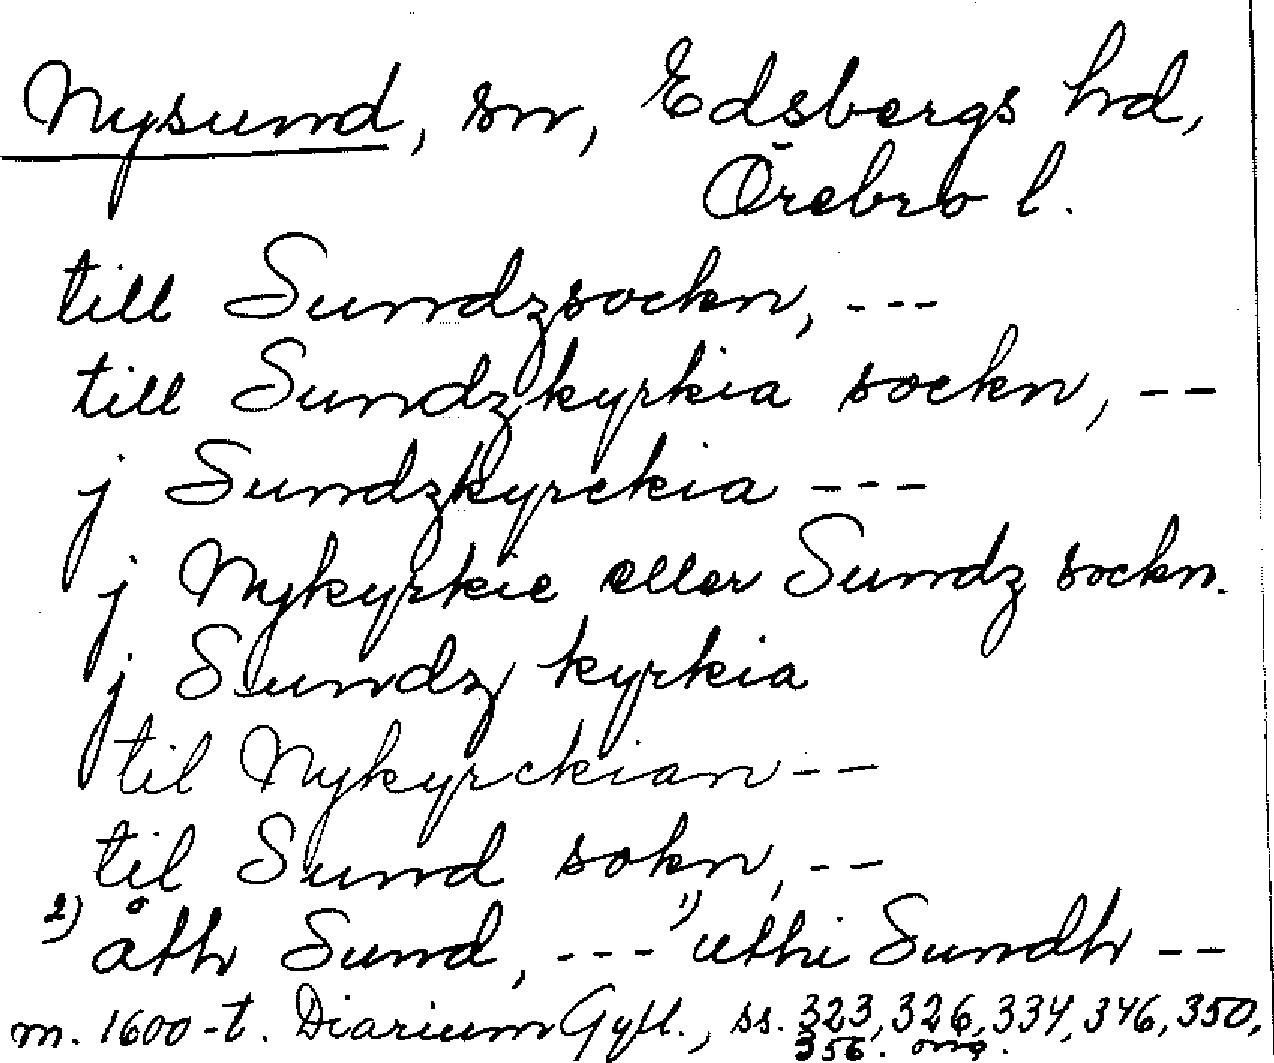 Nysund, sn, Edsbergs hd,
Örebro l.
till Sundzsockn, ---
till Sundzkyrkia sockn, --
j Sundzkyrckia ---
j Nykyrkie eller Sundz sockn.
j Sundz kyrkia
til Nykyrckian --
til Sund sokn, --
2) åth Sund, --- 1) uthi Sundh --
m. 1600-t. Diarium Gyll., ss. 323, 326, 334, 346, 350,
356. omg.